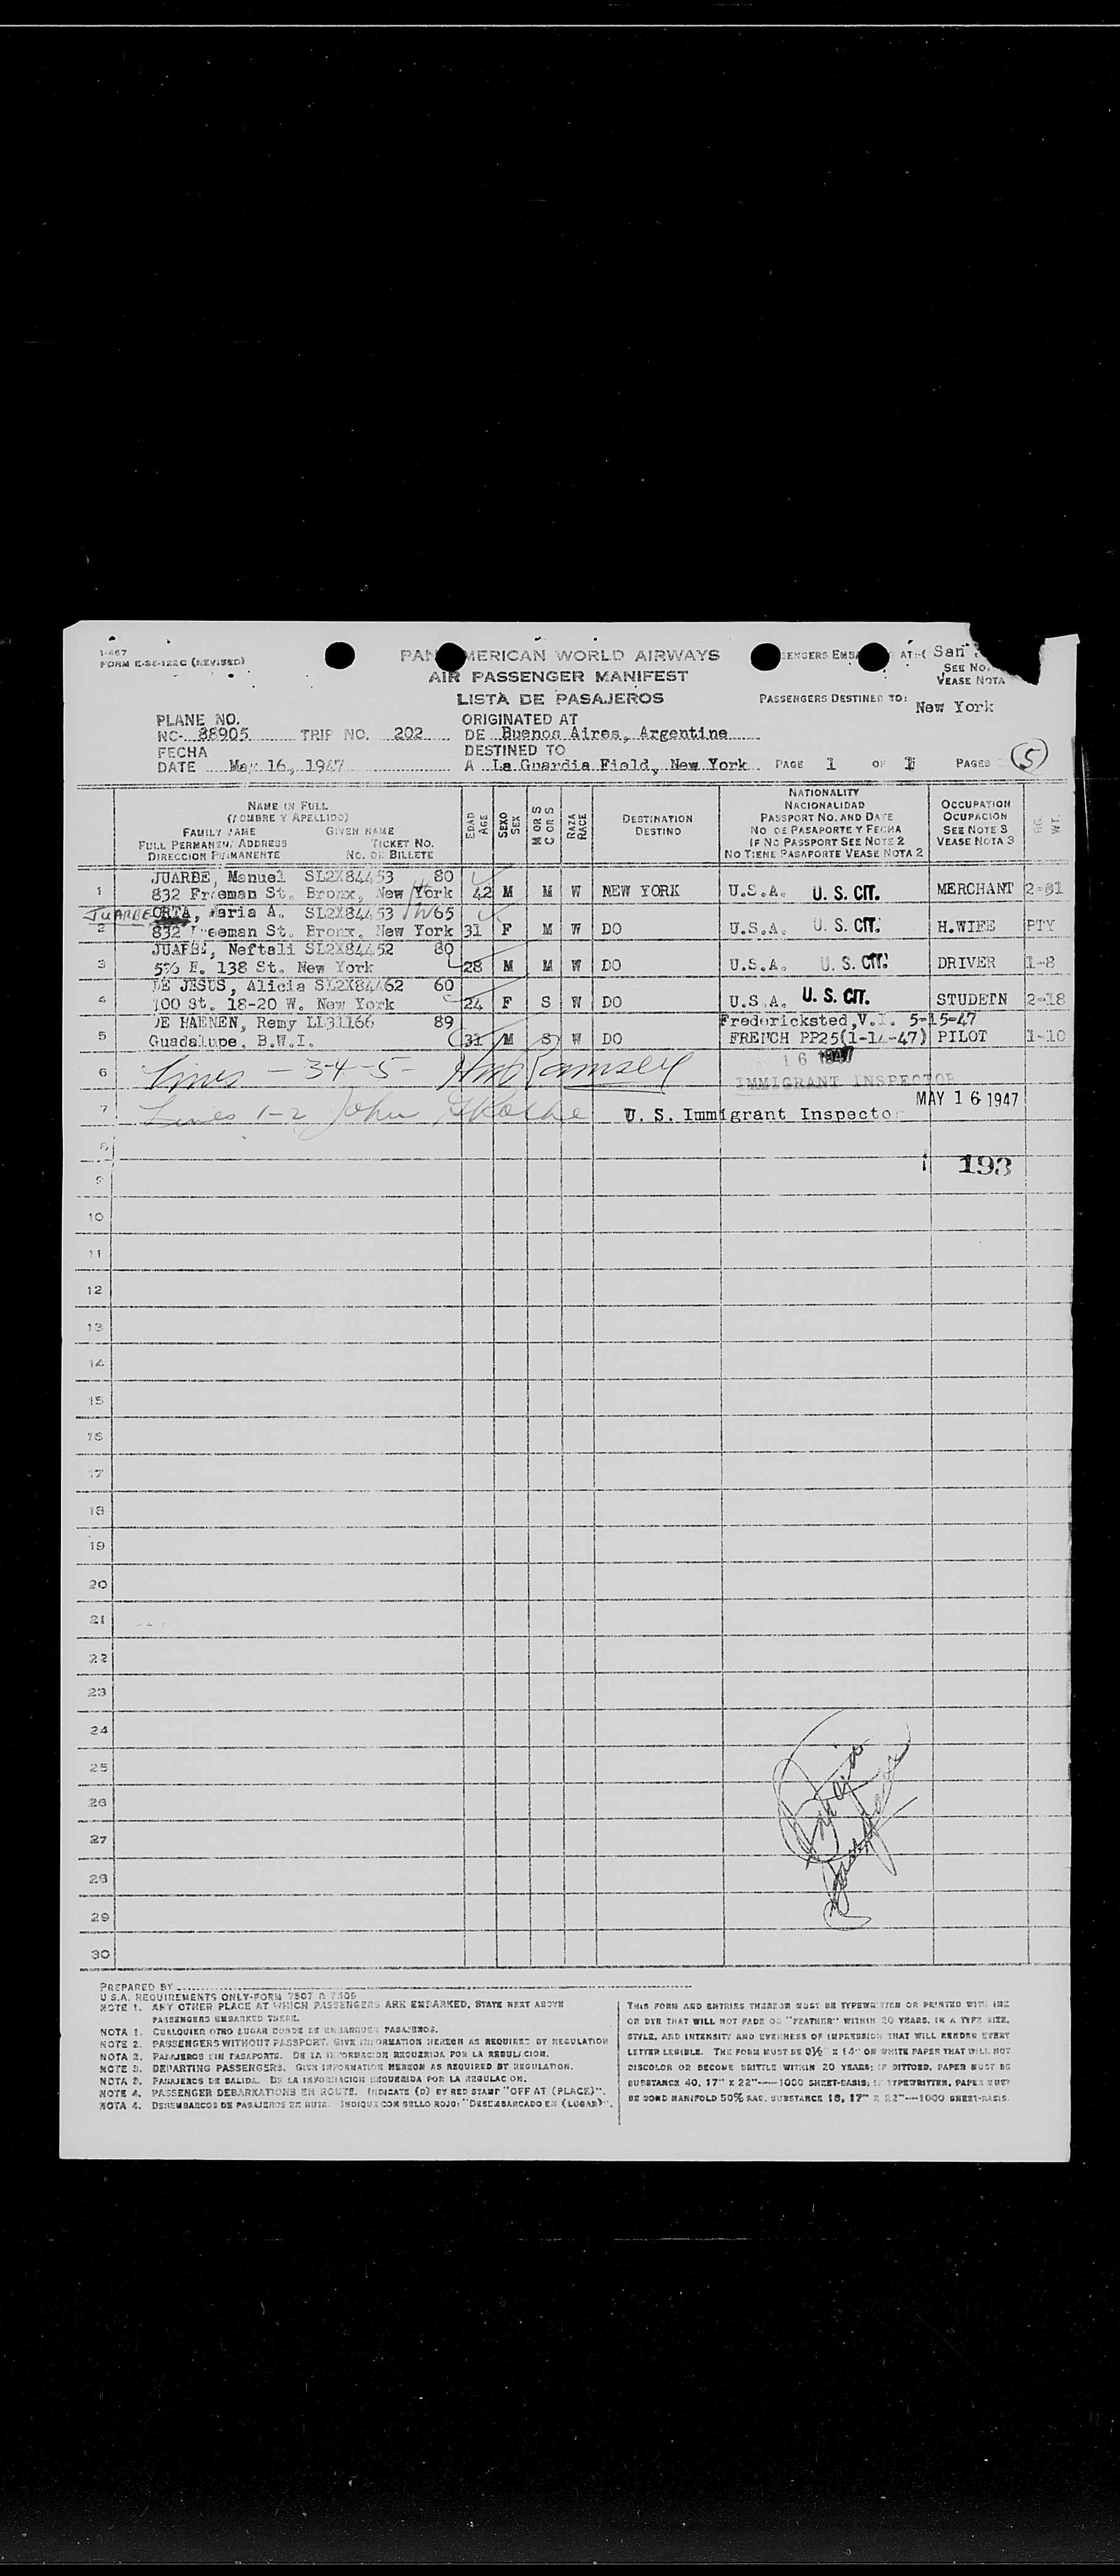 1-467
FORM E-SE-122C (REVISED)
PAN AMERICAN WORLD AIRWAYS
AIR PASSENGER MANIFEST
LISTA DE PASAJEROS
AT:-( San
SEE NO.
VEASE NOTA
PASSENGERS DESTINED TO:
New York
PLANE NO.
NC- 88905 TRIP NO. 202
ORIGINATED AT
DE Buenos Aires, Argentine
FECHA
DATE May 16, 1947
DESTINED TO
A La Guardia Field, New York PAGE 1 OF 1 PAGES 5
NAME IN FULL
(NOMBRE Y APELLIDO)
FAMILY NAME GIVEN NAME
FULL PERMANENT ADDRESS TICKET NO.
DIRECCION PERMANENTE NO. DE BILLETE
EDAD AGE
SEXO SEX
M OR S C OR S
RAZA RACE
DESTINATION
DESTINO
NATIONALITY
NACIONALIDAD
PASSPORT NO. AND DATE
NO. DE PASAPORTE Y FECHA
IF NO PASSPORT SEE NOTE 2
NO TIENE PASAPORTE VEASE NOTA 2
OCCUPATION
OCUPACION
SEE NOTE 3
VEASE NOTA 3
WT.
JUARBE, Manuel SL2X84453 80
1 832 Freeman St. Bronx, New York 42 M M W NEW YORK U.S.A. U. S. CIT. MERCHANT 2-81
JUARBE ORTA, Maria A. SL2X84453 65
2 832 Freeman St. Bronx, New York 31 F M W DO U.S.A. U. S. CIT. H.WIFE PTY
JUARBE, Neftali SL2X84452 80
3 596 E. 138 St. New York 28 M M W DO U.S.A. U. S. CIT. DRIVER 1-8
DE JESUS, Alicia SL2X84462 60
4 100 St. 18-20 W. New York 24 F S W DO U.S.A. U. S. CIT. STUDETN 2-18
DE HAENEN, Remy LL31166 89 Fredericksted,V.I. 5-15-47
5 Guadalupe, B.W.I. 31 M S W DO FRENCH PP25(1-14-47) PILOT 1-10
6 Lines - 3-4-5- Ramsey 16 1947
IMMIGRANT INSPECTOR
7 Lines 1-2 John U. S. Immigrant Inspector MAY 16 1947
8
193
9
10
11
12
13
14
15
16
17
18
19
20
21
22
23
24
25
26
27
28
29
30
PREPARED BY
U S A. REQUIREMENTS ONLY-FORM 7507 R 7509
NOTE 1. ANY OTHER PLACE AT WHICH PASSENGERS ARE EMBARKED, STATE NEXT ABOVE
PASSENGERS EMBARKED THERE.
NOTA 1. CUALQUIER OTRO LUGAR DONDE SE EMBARQUEN PASAJEROS.
NOTE 2. PASSENGERS WITHOUT PASSPORT. GIVE INFORMATION HEREON AS REQUIRED BY REGULATION
NOTA 2. PASAJEROS SIN PASAPORTE. DE LA INFORMACION REQUERIDA POR LA REGULACION.
NOTE 3. DEPARTING PASSENGERS. GIVE INFORMATION HEREON AS REQUIRED BY REGULATION.
NOTA 3. PASAJEROS DE SALIDA. DE LA INFORMACION REQUERIDA POR LA REGULACION.
NOTE 4. PASSENGER DEBARKATIONS EN ROUTE. INDICATE (D) BY RED STAMP "OFF AT (PLACE)".
NOTA 4. DESEMBARCOS DE PASAJEROS EN RUTA. INDIQUE CON SELLO ROJO: "DESEMBARCADO EN (LUGAR)".
THIS FORM AND ENTRIES THEREON MUST BE TYPEWRITTEN OR PRINTED WITH INK
OR DYE THAT WILL NOT FADE OR "FEATHER" WITHIN 20 YEARS, IN A TYPE SIZE,
STYLE, AND INTENSITY AND EVENNESS OF IMPRESSION THAT WILL RENDER EVERY
LETTER LEGIBLE. THE FORM MUST BE 8½" X 14" ON WHITE PAPER THAT WILL NOT
DISCOLOR OR BECOME BRITTLE WITHIN 20 YEARS; IF DITTOED, PAPER MUST BE
SUBSTANCE 40, 17" X 22"----1000 SHEET-BASIS; IF TYPEWRITTEN, PAPER MUST
BE BOND MANIFOLD 50% RAG, SUBSTANCE 18, 17" X 22"----1000 SHEET-BASIS.